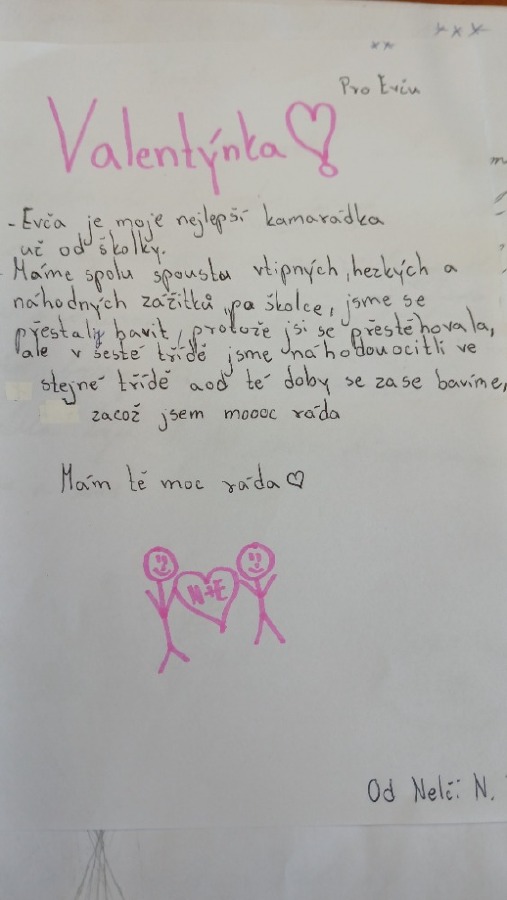 Pro Eviu
Valentýnka
- Evča je moje nejlepší kamarádka
už od školky.
- Máme spolu spoustu vtipných, hezkých a
náhodných zážitků, pa školce, jsme se
přestaliy bavit, protože jsi se přestěhovala,
ale v šesté třídě jsme náhodou ocitli ve
stejné třídě aod té doby se zase bavíme,
zacož jsem moooc ráda
Mám tě moc ráda ♡
N+E
Od Nelči N.